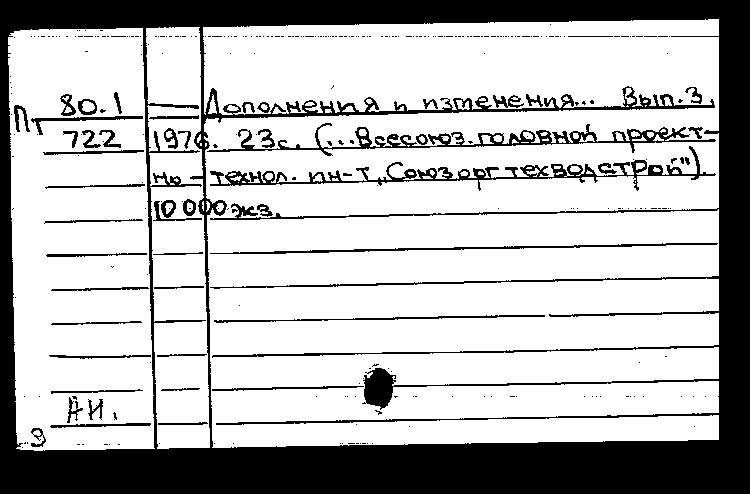 Пт 80.1 — Дополнения и изменения... Вып.3.
722 1976. 23с. (...Всесоюз. головной проект-
но-технол. ин-т „Союзоргтехводстрой").
10 000 экз.
АН.
3